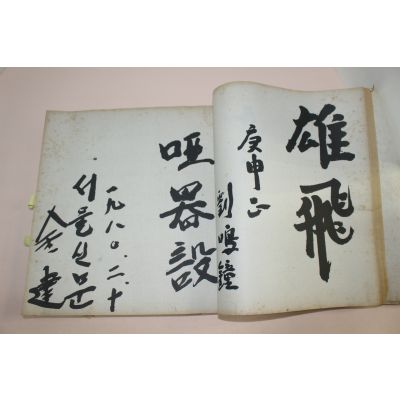 雄飛
庚申正
劉鳴鐘
哑器設
一九八〇.二.十
서울신문
建